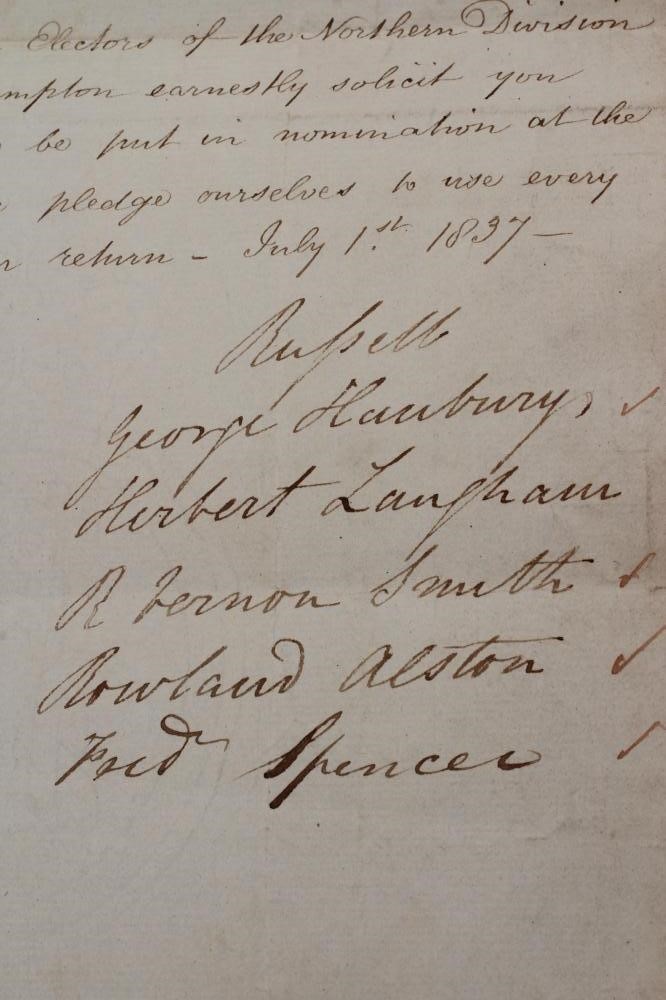 Electors of the Northern Division
mpton earnestly solicit you
be put in nomination at the
pledge ourselves to use every
return – July 1st. 1837 –
Russell
George Hanbury,
Herbert Langham
R Vernon Smith
Rowland Alston
Fredk Spencer